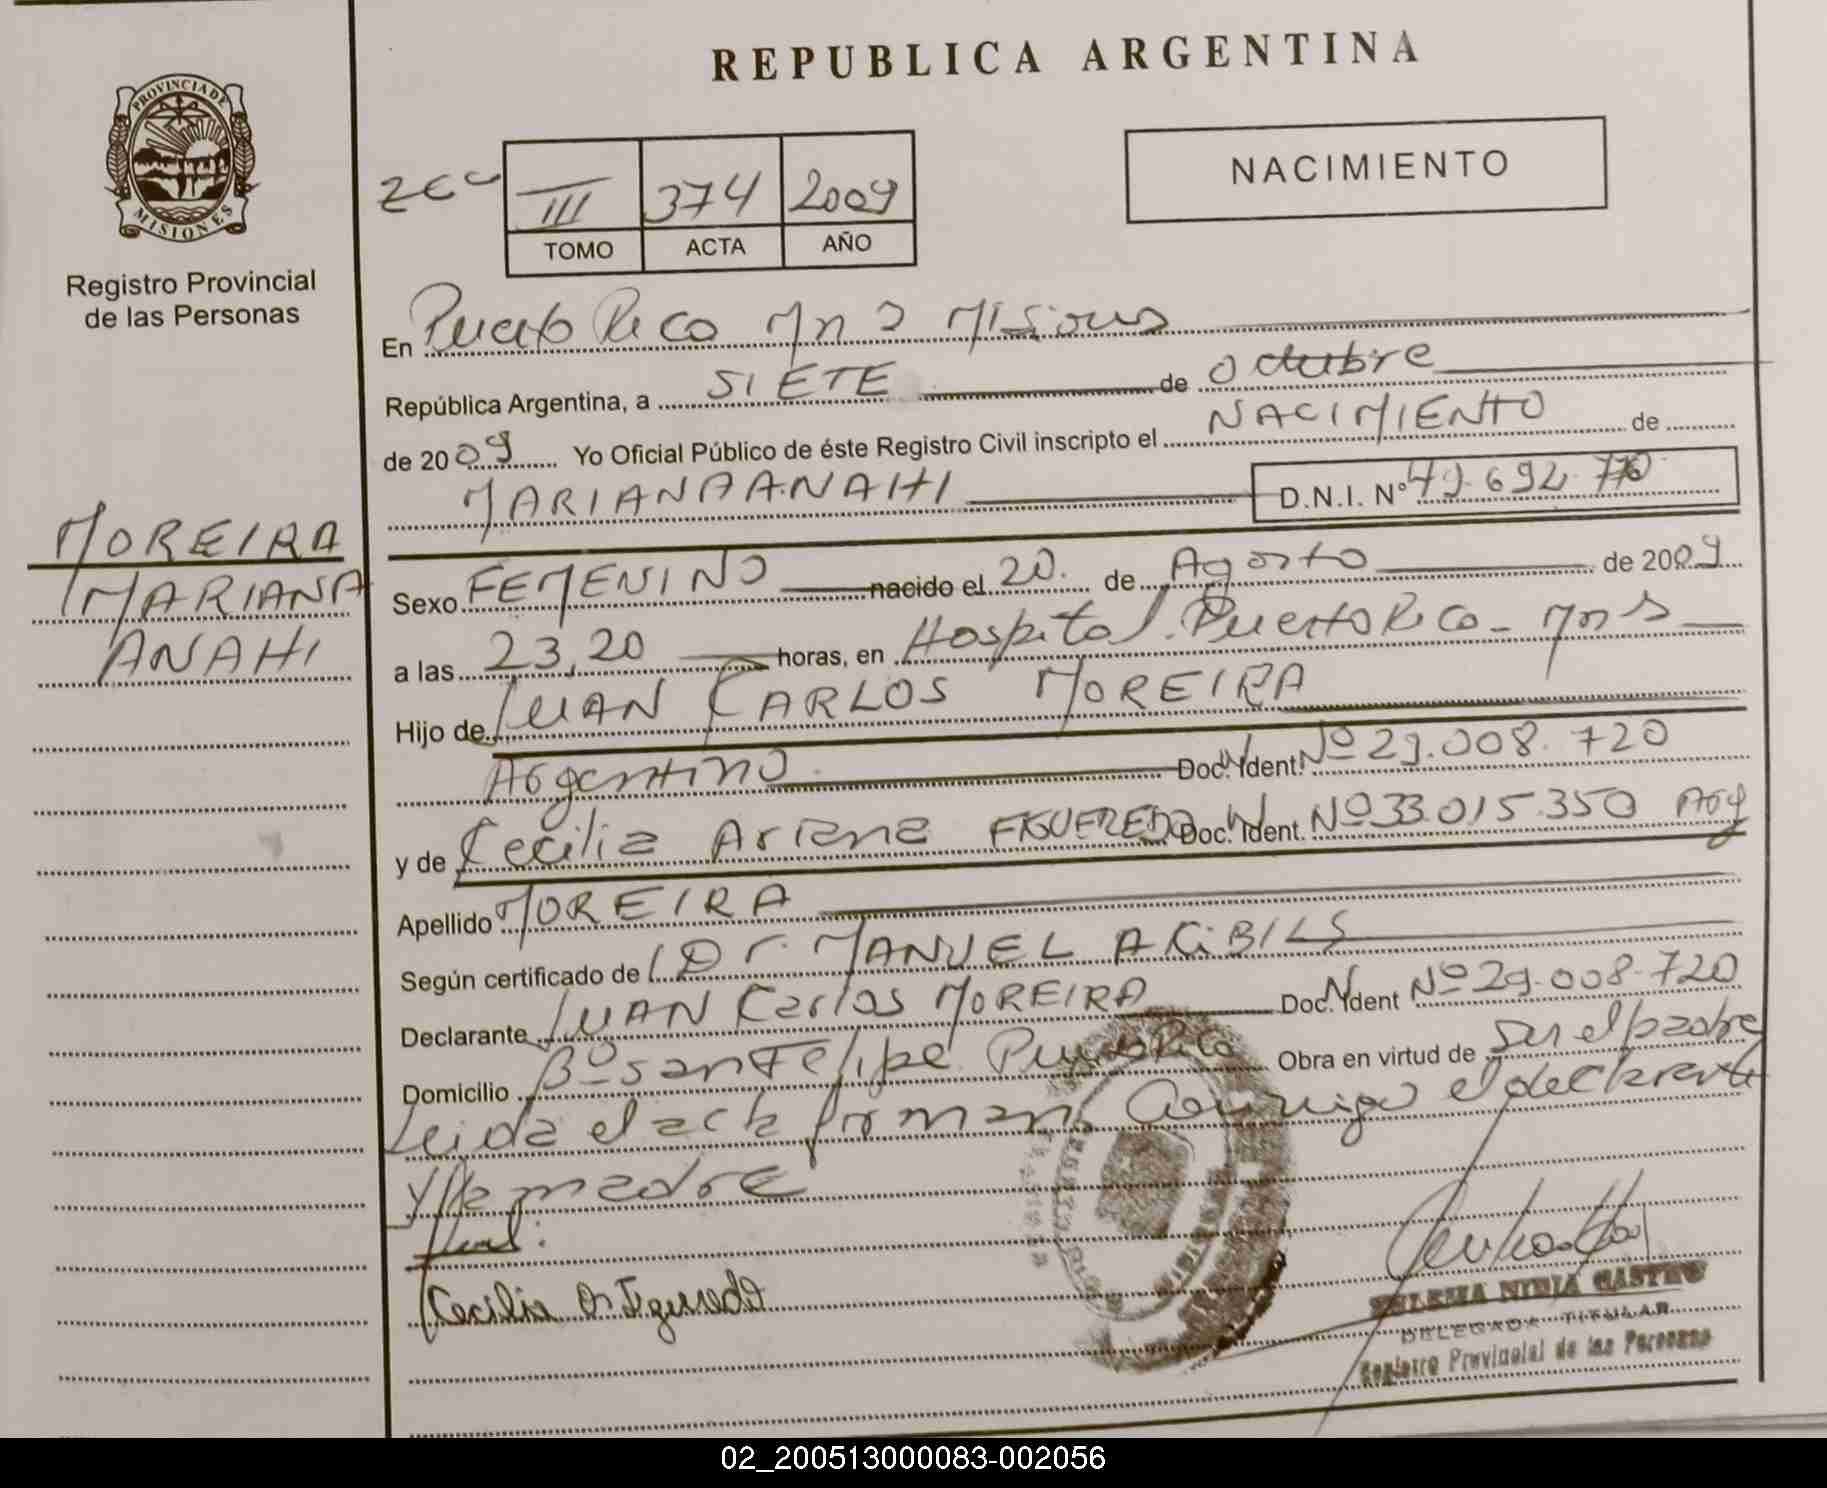 REPUBLICA ARGENTINA
PROVINCIA DE
MISIONES
Registro Provincial
de las Personas
NACIMIENTO
III 374 2009
TOMO ACTA AÑO
En Puerto Rico Mns Misiones
República Argentina, a SIETE de Octubre
de 2009 Yo Oficial Público de éste Registro Civil inscripto el NACIMIENTO de
MARIANA ANAHI D.N.I. Nº 49.692.770
MOREIRA
MARIANA
ANAHI
Sexo FEMENINO nacido el 20 de Agosto de 2009
a las 23,20 horas, en Hospital Puerto Rico - Mns
Hijo de JUAN CARLOS MOREIRA
Argentino Doc. Ident. Nº 29.008.720
y de Cecilia Ariana FIGUEREDO Doc. Ident. Nº 33.015.350 Arg
Apellido MOREIRA
Según certificado de Dr. MANUEL
Declarante JUAN Carlos MOREIRA Doc. Ident Nº 29.008.720
Domicilio Bº San Felipe Puerto Rico Obra en virtud de ser el padre
Leida el acta firman Conmigo el declarante
y la madre
Cecilia A. Figueredo
NIDIA CASTRO
DELEGADA TITULAR
Registro Provincial de las Personas
02_200513000083-002056